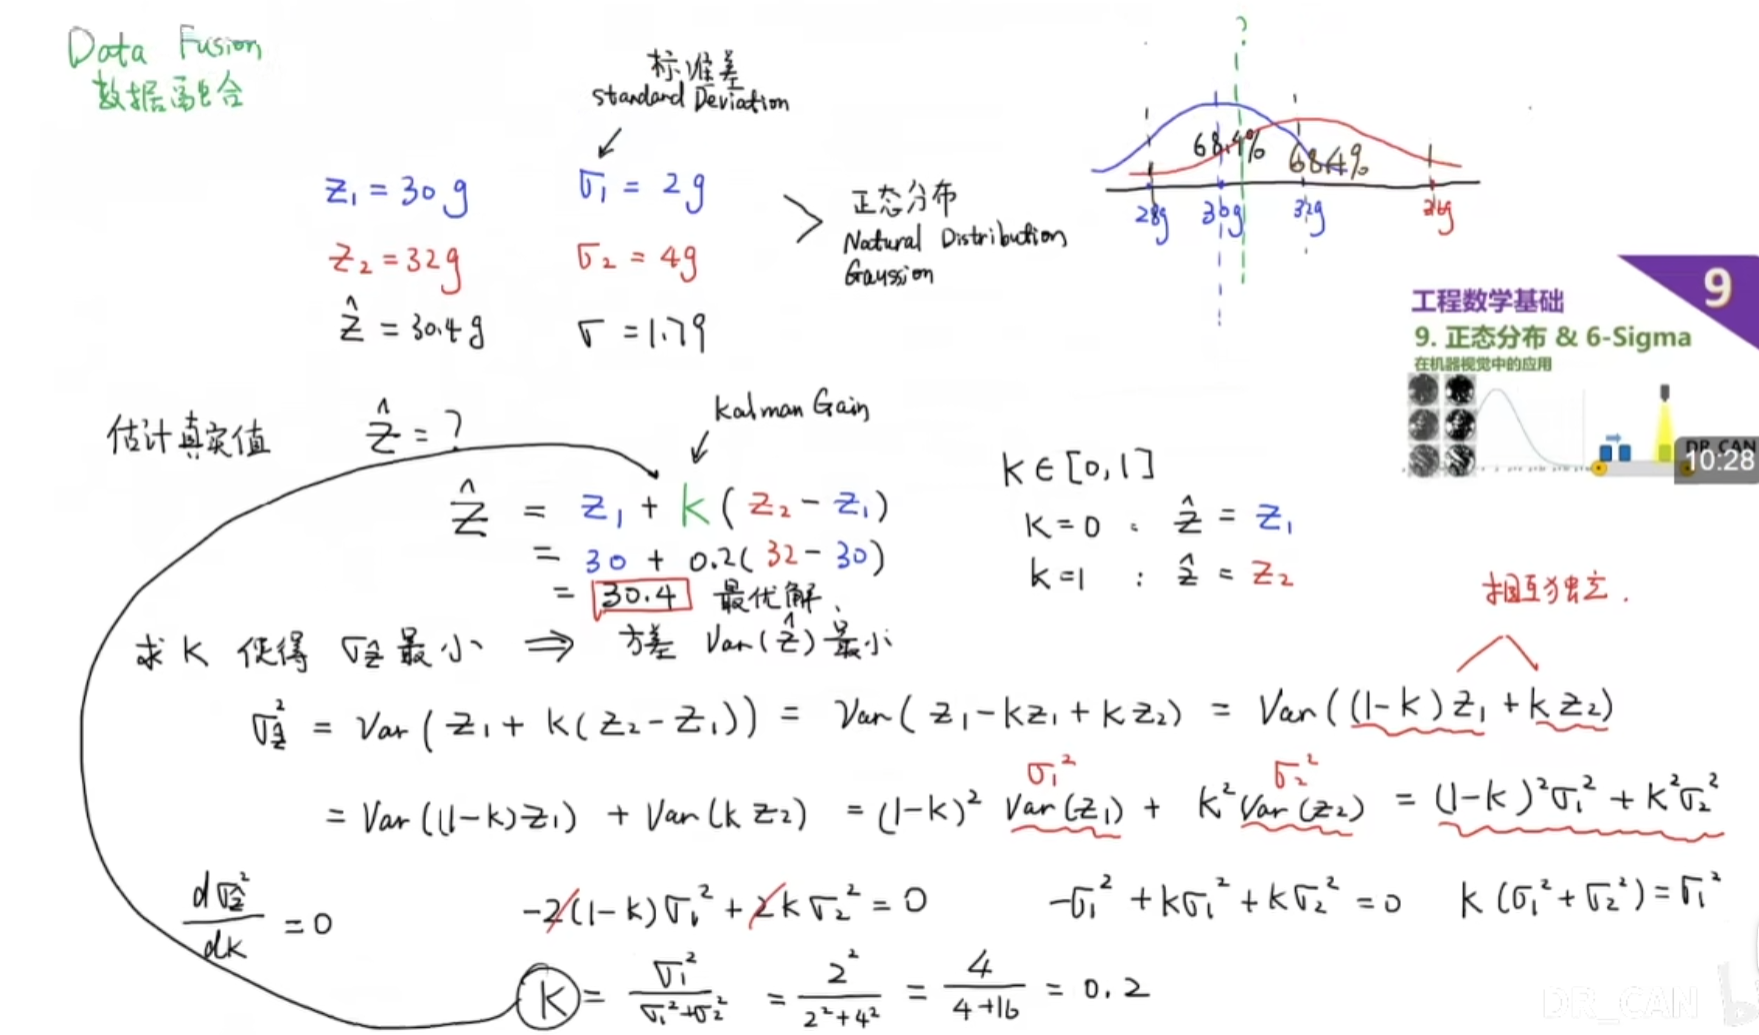 Data Fusion
数据融合
标准差
Standard Deviation
z₁ = 30g σ₁ = 2g
z₂ = 32g σ₂ = 4g
ẑ = 30.4g σ = 1.79
正态分布
Natural Distribution
Gaussion
?
68.4% 68.4%
28g 30g 32g 36g
工程数学基础
9
9. 正态分布 & 6-Sigma
在机器视觉中的应用
DR_CAN
10:28
估计真实值 ẑ = ?
Kalman Gain
ẑ = z₁ + k(z₂ - z₁)
= 30 + 0.2(32 - 30)
= 30.4 最优解
k ∈ [0,1]
k = 0 : ẑ = z₁
k = 1 : ẑ = z₂
相互独立.
求 k 使得 σẑ 最小 ⇒ 方差 Var(ẑ) 最小
σẑ² = Var(z₁ + k(z₂ - z₁)) = Var(z₁ - kz₁ + kz₂) = Var((1-k)z₁ + kz₂)
σ₁² σ₂²
= Var((1-k)z₁) + Var(kz₂) = (1-k)² Var(z₁) + k² Var(z₂) = (1-k)²σ₁² + k²σ₂²
dσẑ²/dk = 0 -2(1-k)σ₁² + 2kσ₂² = 0 -σ₁² + kσ₁² + kσ₂² = 0 k(σ₁² + σ₂²) = σ₁²
k = σ₁²/(σ₁²+σ₂²) = 2²/(2²+4²) = 4/(4+16) = 0.2
DR_CAN